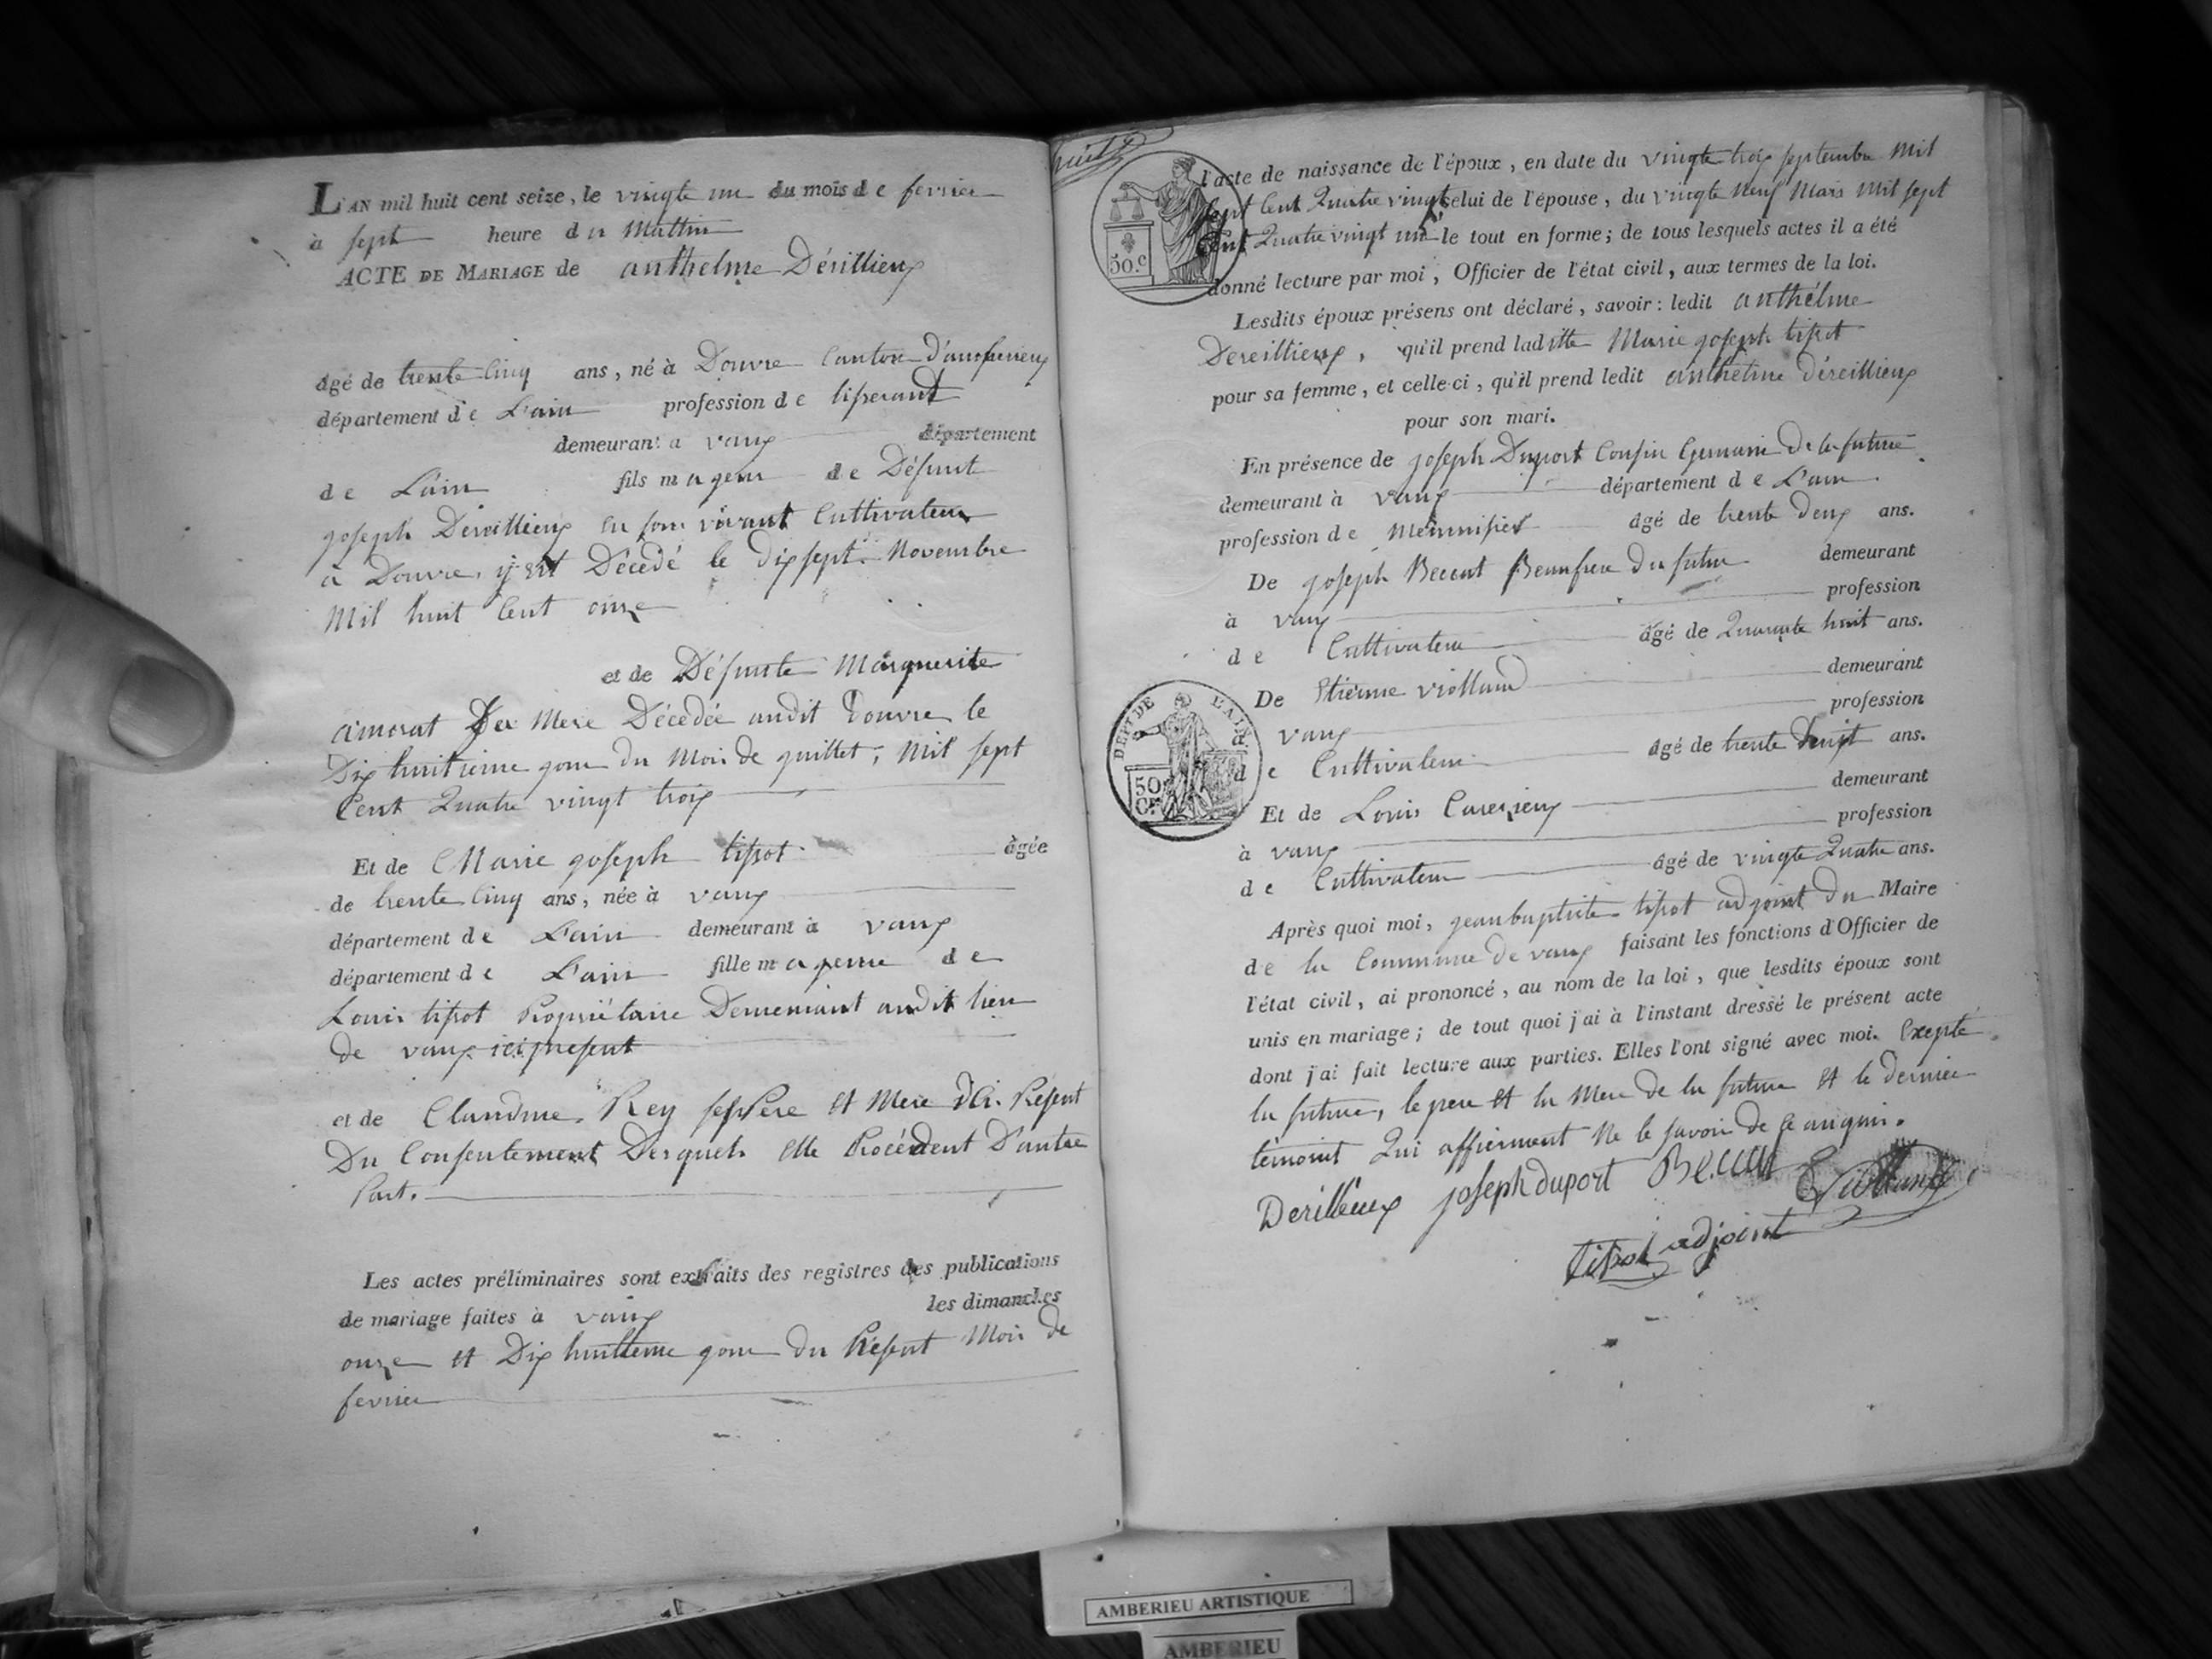 L'AN mil huit cent seize, le vingte un du mois de fevrier
à sept heure du Mattin
ACTE DE MARIAGE de anthelme Dérillieux
âgé de trente Cinq ans, né à Douvre Canton D'amberieux
département de L'ain profession de tisserant
demeurant a vaux département
de L'ain fils mageur de Défunt
joseph Déreillieux en son vivant Cultivateur
a Douvre, y est Décédé le Dix sept Novembre
Mil huit Cent onze
et de Défunte Marguerite
amorat Sa Mere Décédée audit Douvre le
Dix huitieme jour du Moi de juillet, Mil sept
Cent Quatre vingt trois
Et de Marie joseph tissot âgée
de trente Cinq ans, née à vaux
département de L'ain demeurant à vaux
département de L'ain fille mageure de
Louis tissot Propriétaire Demeurant audit lieu
de vaux ici present
et de Claudine Rey ses Pere et Mere ici Présent
Du Consentement Desquels elle Procédent D'autre
Part.
Les actes préliminaires sont extraits des registres des publications
de mariage faites à vaux les dimanches
onze et Dix huitieme jour du Présent Moi de
fevrier
l'acte de naissance de l'époux, en date du vingte trois septembre Mil
sept Cent Quatre vingt celui de l'épouse, du vingte Neuf Mars Mil sept
Cent Quatre vingt un le tout en forme; de tous lesquels actes il a été
donné lecture par moi, Officier de l'état civil, aux termes de la loi.
50.c
Lesdits époux présens ont déclaré, savoir: ledit anthélme
Dereillieux, qu'il prend laditte Marie joseph tissot
pour sa femme, et celle-ci, qu'il prend ledit anthelme déreillieux
pour son mari.
En présence de joseph Duport Cousin Germain De la future
demeurant à vaux département de L'ain
profession de Menuisier âgé de trente Deux ans.
De joseph Beccat Beaufrere Du futur demeurant
à vaux profession
de Cultivateur âgé de Quarante huit ans.
De Etienne violland demeurant
DEPT. DE L'AIN
50 Cs.
à vaux profession
de Cultivateur âgé de trente huit ans.
Et de Louis demeurant
à vaux profession
de Cultivateur âgé de vingte Quatre ans.
Après quoi moi, jeanbaptiste tissot adjoint Du Maire
de la Commune de vaux faisant les fonctions d'Officier de
l'état civil, ai prononcé, au nom de la loi, que lesdits époux sont
unis en mariage; de tout quoi j'ai à l'instant dressé le présent acte
dont j'ai fait lecture aux parties. Elles l'ont signé avec moi. Exepté
la future, le pere et la Mere de la future et le dernier
témoint Qui affierment Ne le savoir de ce anquis.
Derillieux joseph duport Beccat E violland
tissot adjoint
AMBERIEU ARTISTIQUE
AMBERIEU